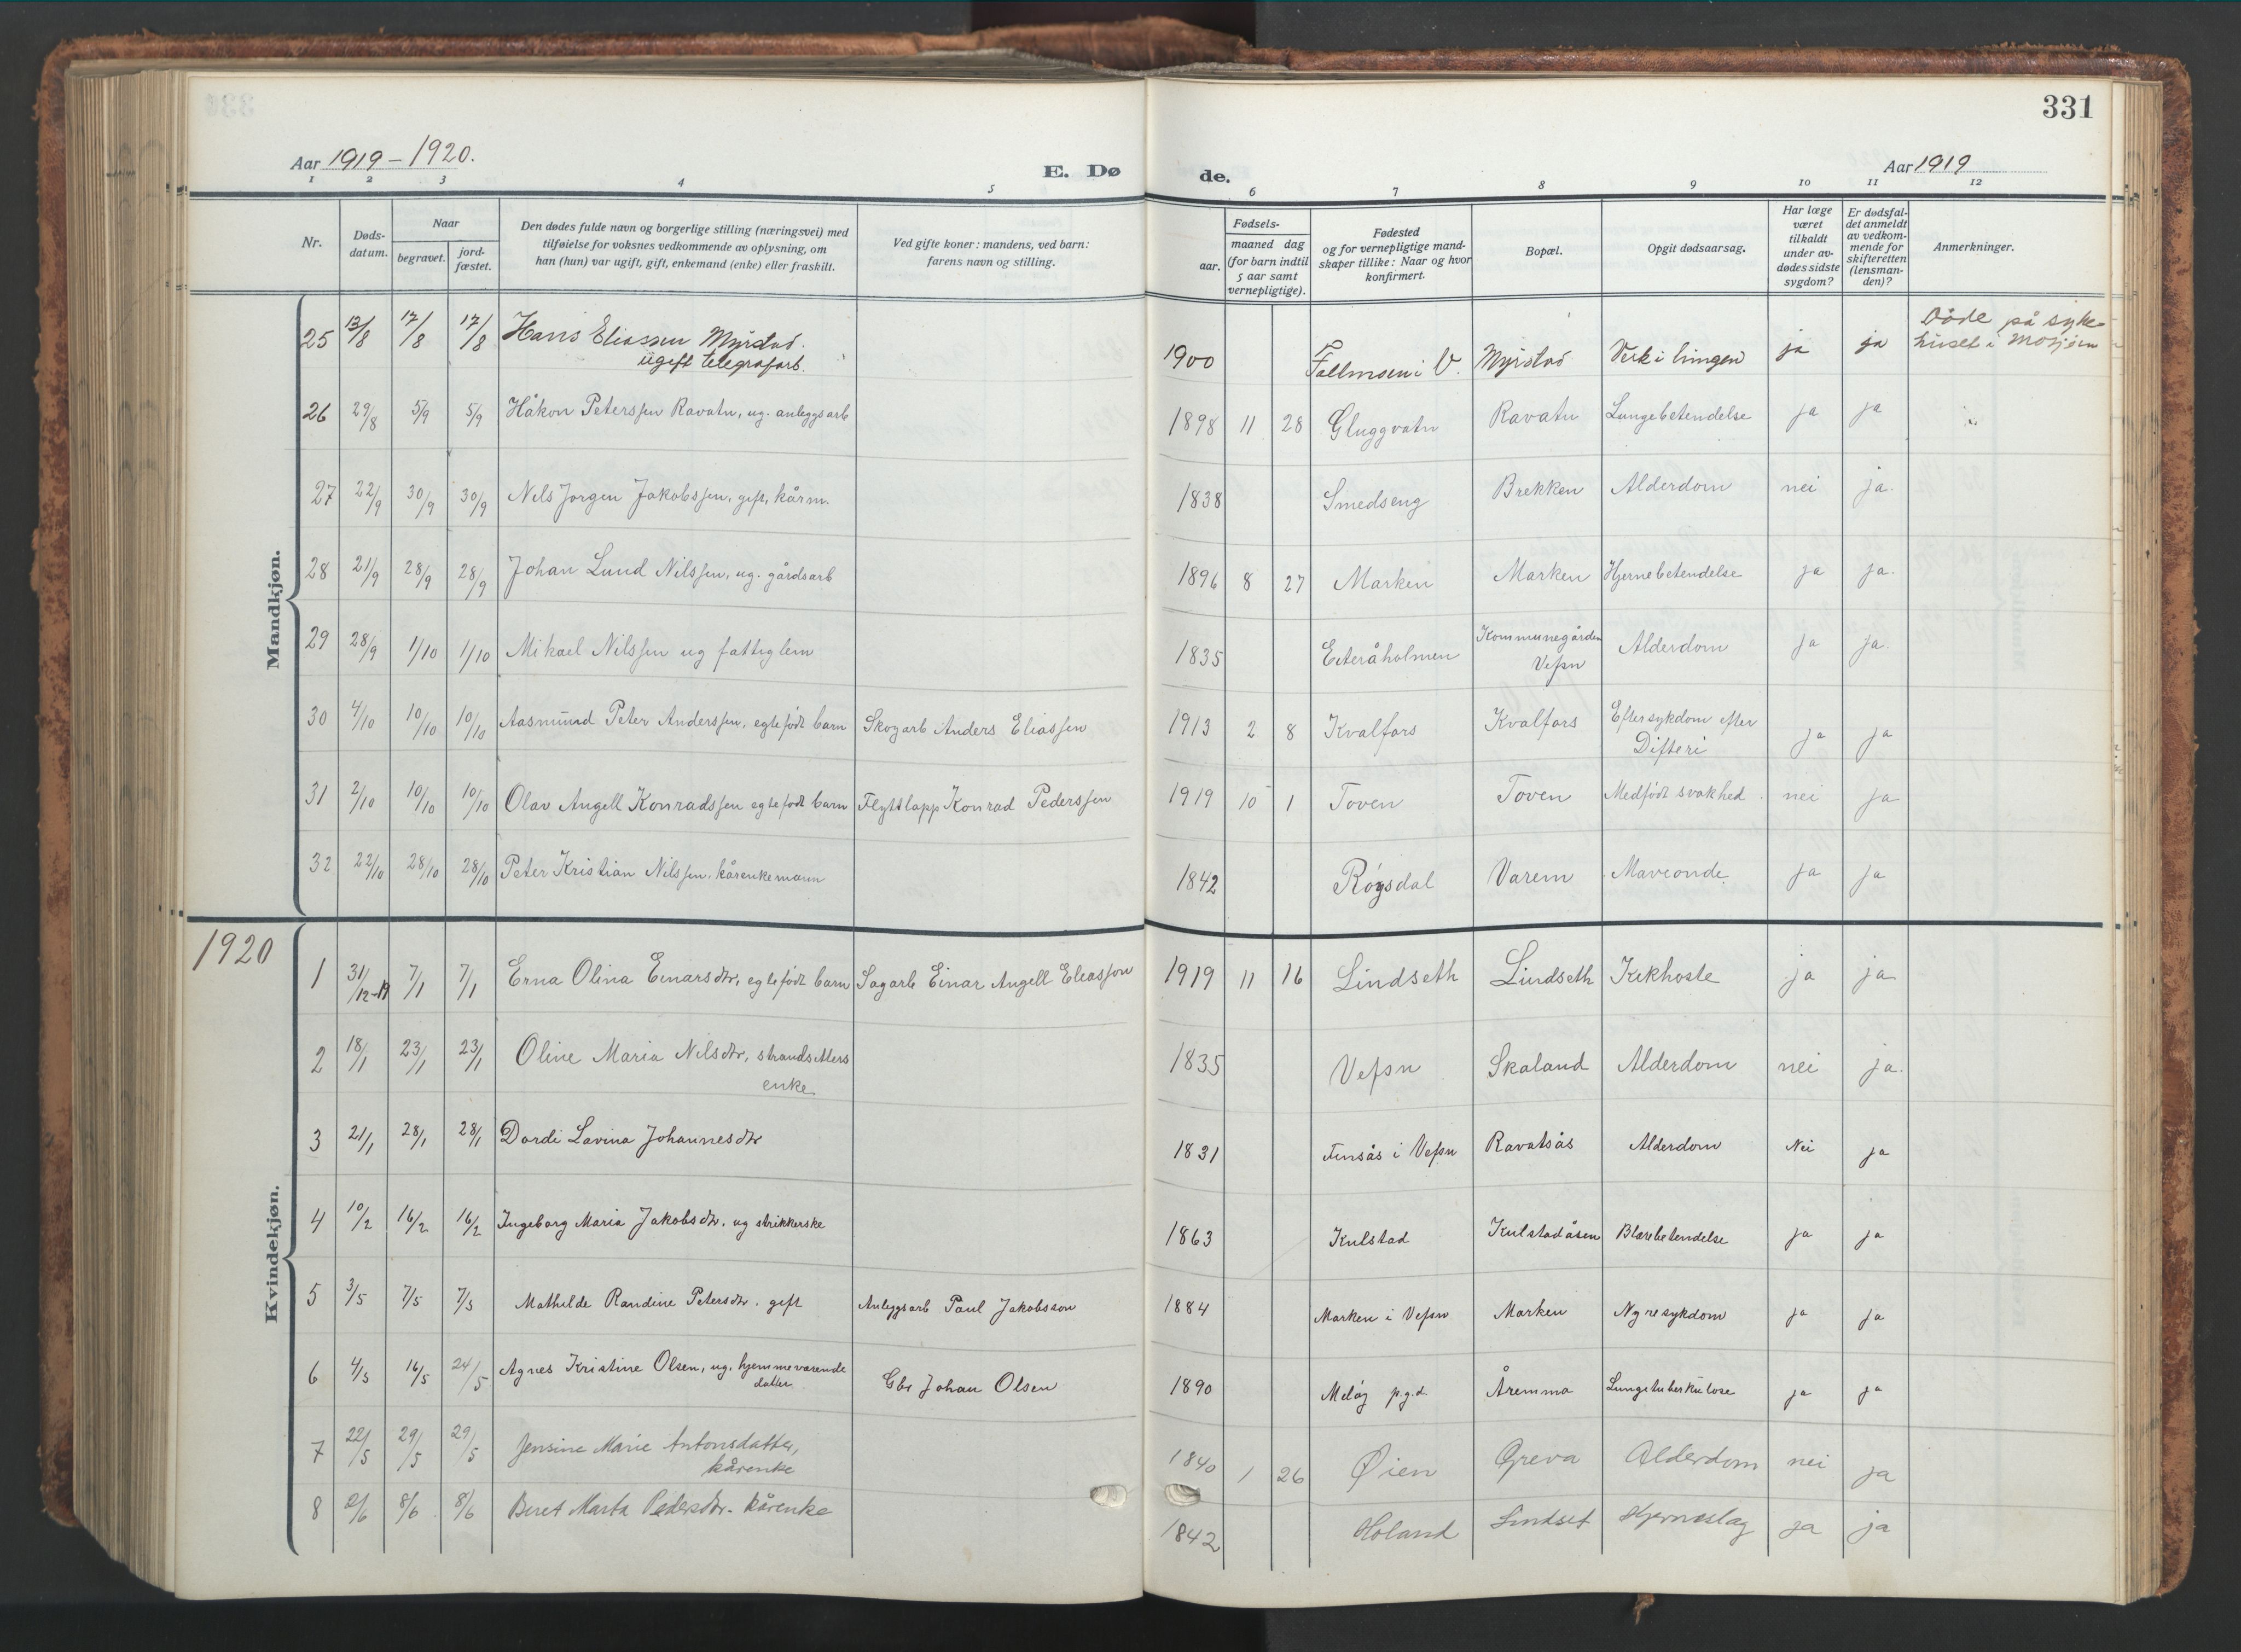 331
Aar 1919 - 1920.
E. Dø
de.
Aar 1919
1 2 3 4 5 6 7 8 9 10 11 12
Nr.
Døds-
datum.
Naar
begravet.
jord-
fæstet.
Den dødes fulde navn og borgerlige stilling (næringsvei) med
tilføielse for voksnes vedkommende av oplysning, om
han (hun) var ugift, gift, enkemand (enke) eller fraskilt.
Ved gifte koner: mandens, ved barn:
farens navn og stilling.
Fødsels-
aar.
maaned dag
(for barn indtil
5 aar samt
vernepligtige).
Fødested
og for vernepligtige mand-
skaper tillike: Naar og hvor
konfirmert.
Bopæl.
Opgit dødsaarsag.
Har læge
været
tilkaldt
under av-
dødes sidste
sygdom?
Er dødsfal-
det anmeldt
av vedkom-
mende for
skifteretten
(lensman-
den)?
Anmerkninger.
Mandkjøn.
25 12/8 17/8 17/8 Hans Eliassen Myrstad.
ugift telegrafarb.
1900 Fallmoen i V. Myrstad ja ja
Döde på syke-
huset i Mosjøen
26 29/8 5/9 5/9 Håkon Peterssen Ravatn, ug. anleggsarb 1898 11 28 Gluggvatn Ravatn Lungebetendelse ja ja
27 22/9 30/9 30/9 Nils Jørgen Jakobssen, gift, kårm. 1838 Smedseng Brekken Alderdom nei ja.
28 21/9 28/9 28/9 Johan Lund Nilssen, ug. gårdsarb 1896 8 27 Marken Marken Hjernebetendelse ja ja.
29 28/9 1/10 1/10 Mikael Nilssen ug fattiglem 1835 Eiteråholmen Kommunegården
Vefsn Alderdom ja ja.
30 4/10 10/10 10/10 Aasmund Peter Anderssen, egtefødt barn Skogarb Anders Eliassen 1913 2 8 Kvalfors Kvalfors Eftersykdom efter
Difteri ja ja
31 2/10 10/10 10/10 Olav Angell Konradssen egtefødt barn Flyttlapp Konrad Pederssen 1919 10 1 Toven Toven Medfødt svakhed. nei ja
32 22/10 28/10 28/10 Peter Kristian Nilssen. kårenkemann 1842 Røgsdal Varem Maveonde. ja ja
1920
Kvindekjøn.
1 31/12-19 7/1 7/1 Erna Olina Einarsdtr, egtefødt barn Sagarb Einar Angell Eleasson 1919 11 16 Lindseth Lindseth Kikhoste ja ja
2 18/1 23/1 23/1 Oline Maria Nilsdtr, strandsitters
enke
1835 Vefsn Skaland Alderdom nei ja.
3 21/1 28/1 28/1 Dordi Lavina Johannesdtr 1831 Finsås i Vefsn Ravatsås Alderdom Nei ja
4 10/2 16/2 16/2 Ingeborg Maria Jakobsdtr. ug strikkerske 1863 Kulstad Kulstadåsen Blærebetendelse ja ja
5 3/5 7/5 7/5 Mathilde Randine Petersdtr. gift Anleggsarb Paul Jakobsson 1884 Marken i Vefsn Marken Nyresykdom ja ja
6 4/5 16/5 24/5 Agnes Kristine Olsen, ug. hjemmeværende
datter
Gbr Johan Olsen 1890 Meløy p.g.d. Åremma Lungetuberkulose ja ja
7 22/5 29/5 29/5 Jensine Marie Antonsdatter,
kårenke
1840 1 26 Øien Greva Alderdom nei ja
8 2/6 8/6 8/6 Beret Marta Pedersdtr. kårenke 1842 Holand Lindset Hjerneslag ja ja